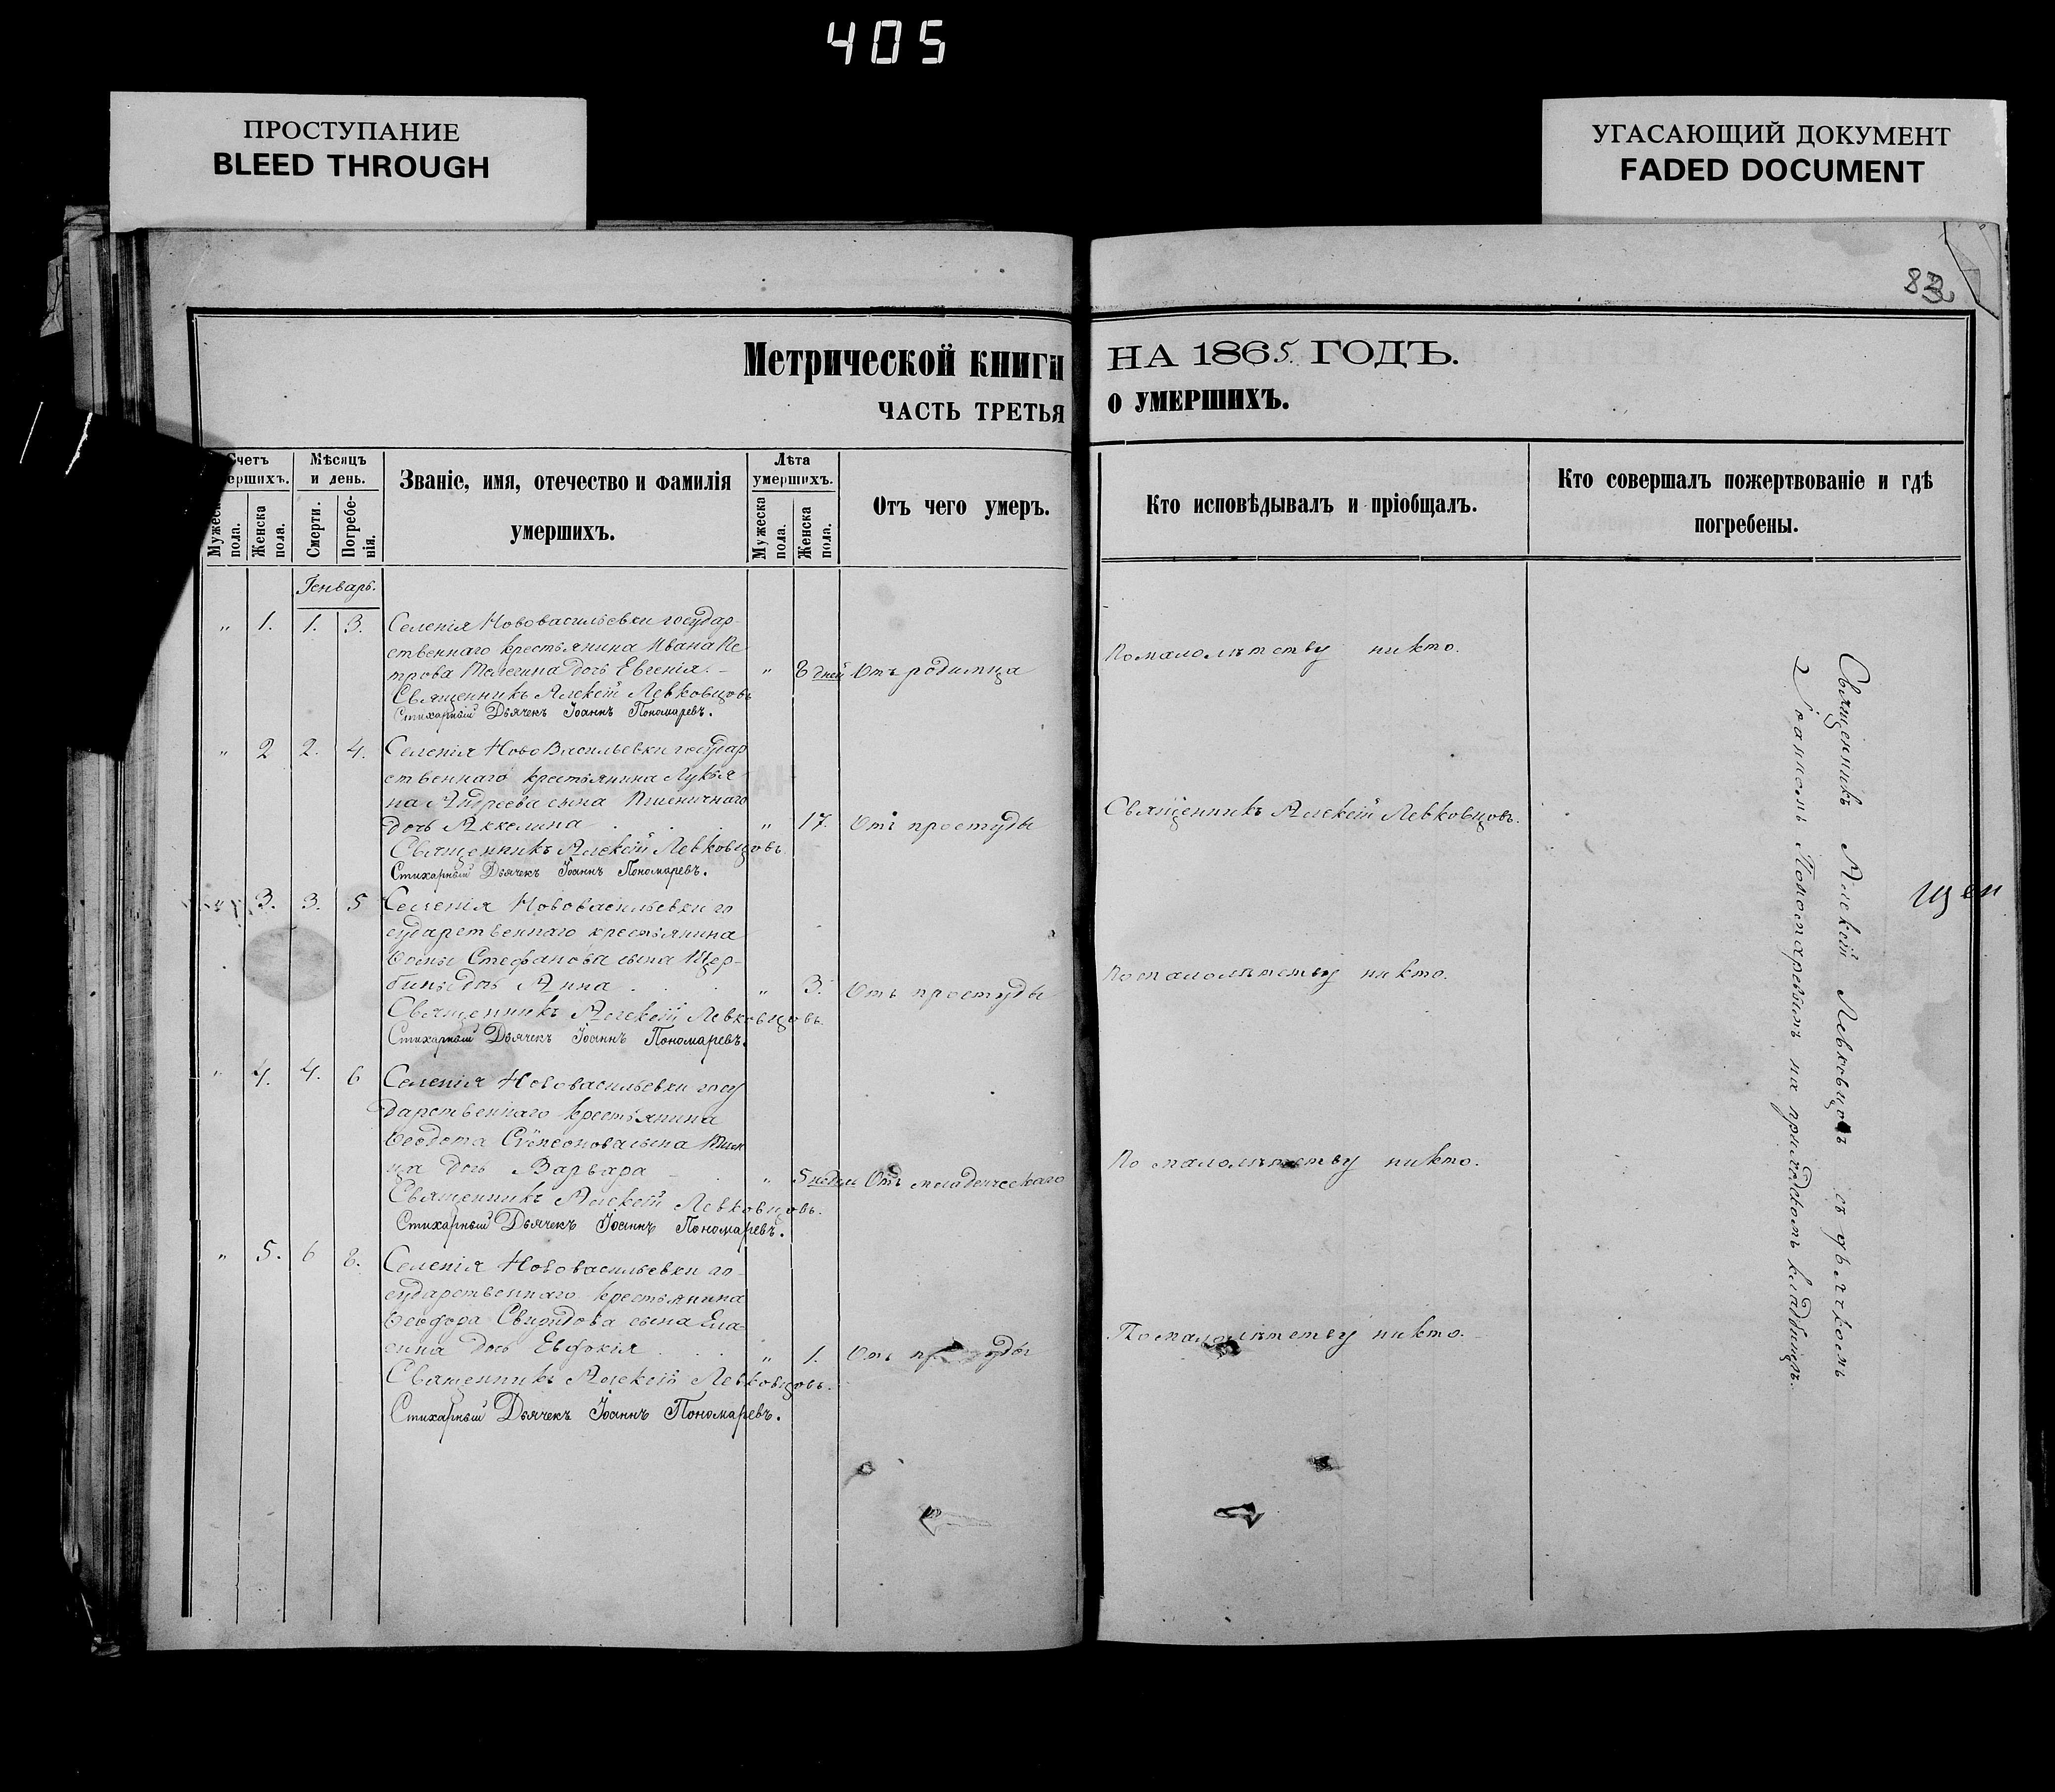 405
ПРОСТУПАНИЕ
BLEED THROUGH
УГАСАЮЩИЙ ДОКУМЕНТ
FADED DOCUMENT
83
Метрической книги
НА 1865. ГОДЪ.
ЧАСТЬ ТРЕТЬЯ
О УМЕРШИХЪ.
Счетъ
ершихъ.
Мужеска пола.
Женска пола.
Мѣсяцъ
и день.
Смерти.
Погребе-
нія.
Званіе, имя, отечество и фамилія
умершихъ.
Лѣта
умершихъ.
Мужеска пола.
Женска пола.
Отъ чего умеръ.
Кто исповѣдывалъ и пріобщалъ.
Кто совершалъ пожертвованіе и гдѣ
погребены.
Генварь.
" 1. 1. 3. Селенія Нововасильевки государ-
ственнаго крестьянина Ивана Пе
трова дочь Евгенія. " 8 дней Отъ родимца
По малолѣтству никто.
Священникъ Алексій Левковцовъ
Стихарный Дьячекъ Іоаннъ Пономаревъ.
" 2 2. 4. Селенія Нововасильевки государ
ственнаго крестьянина Лукья
на Андреева сына Пшеничнаго
дочь Акилина " 17. Отъ простуды
Священникъ Алексій Левковцовъ.
Священникъ Алексій Левковцовъ.
Стихарный Дьячекъ Іоаннъ Пономаревъ.
" 3. 3. 5 Селенія Нововасильевки го
сударственнаго крестьянина
Стефанова сына Щер-
бины дочь Анна " 3. Отъ простуды
По малолѣтству никто.
Священникъ Алексій Левковцовъ.
Стихарный Дьячекъ Іоаннъ Пономаревъ.
" 4. 4. 6 Селенія Нововасильевки госу
дарственнаго крестьянина
Ѳеодота сына
дочь Варвара " 5 недель Отъ младенческаго
По малолѣтству никто.
Священникъ Алексій Левковцовъ.
Стихарный Дьячекъ Іоаннъ Пономаревъ.
" 5. 6 8. Селенія Нововасильевки го-
сударственнаго крестьянина
Ѳеодора Свиридова сына
дочь Евдокія " 1. Отъ простуды
По малолѣтству никто.
Священникъ Алексій Левковцовъ.
Стихарный Дьячекъ Іоаннъ Пономаревъ.
Священникъ Алексій Левковцовъ съ дьячкомъ
Іоанномъ Пономаревымъ на приходскомъ кладбищѣ.
щен